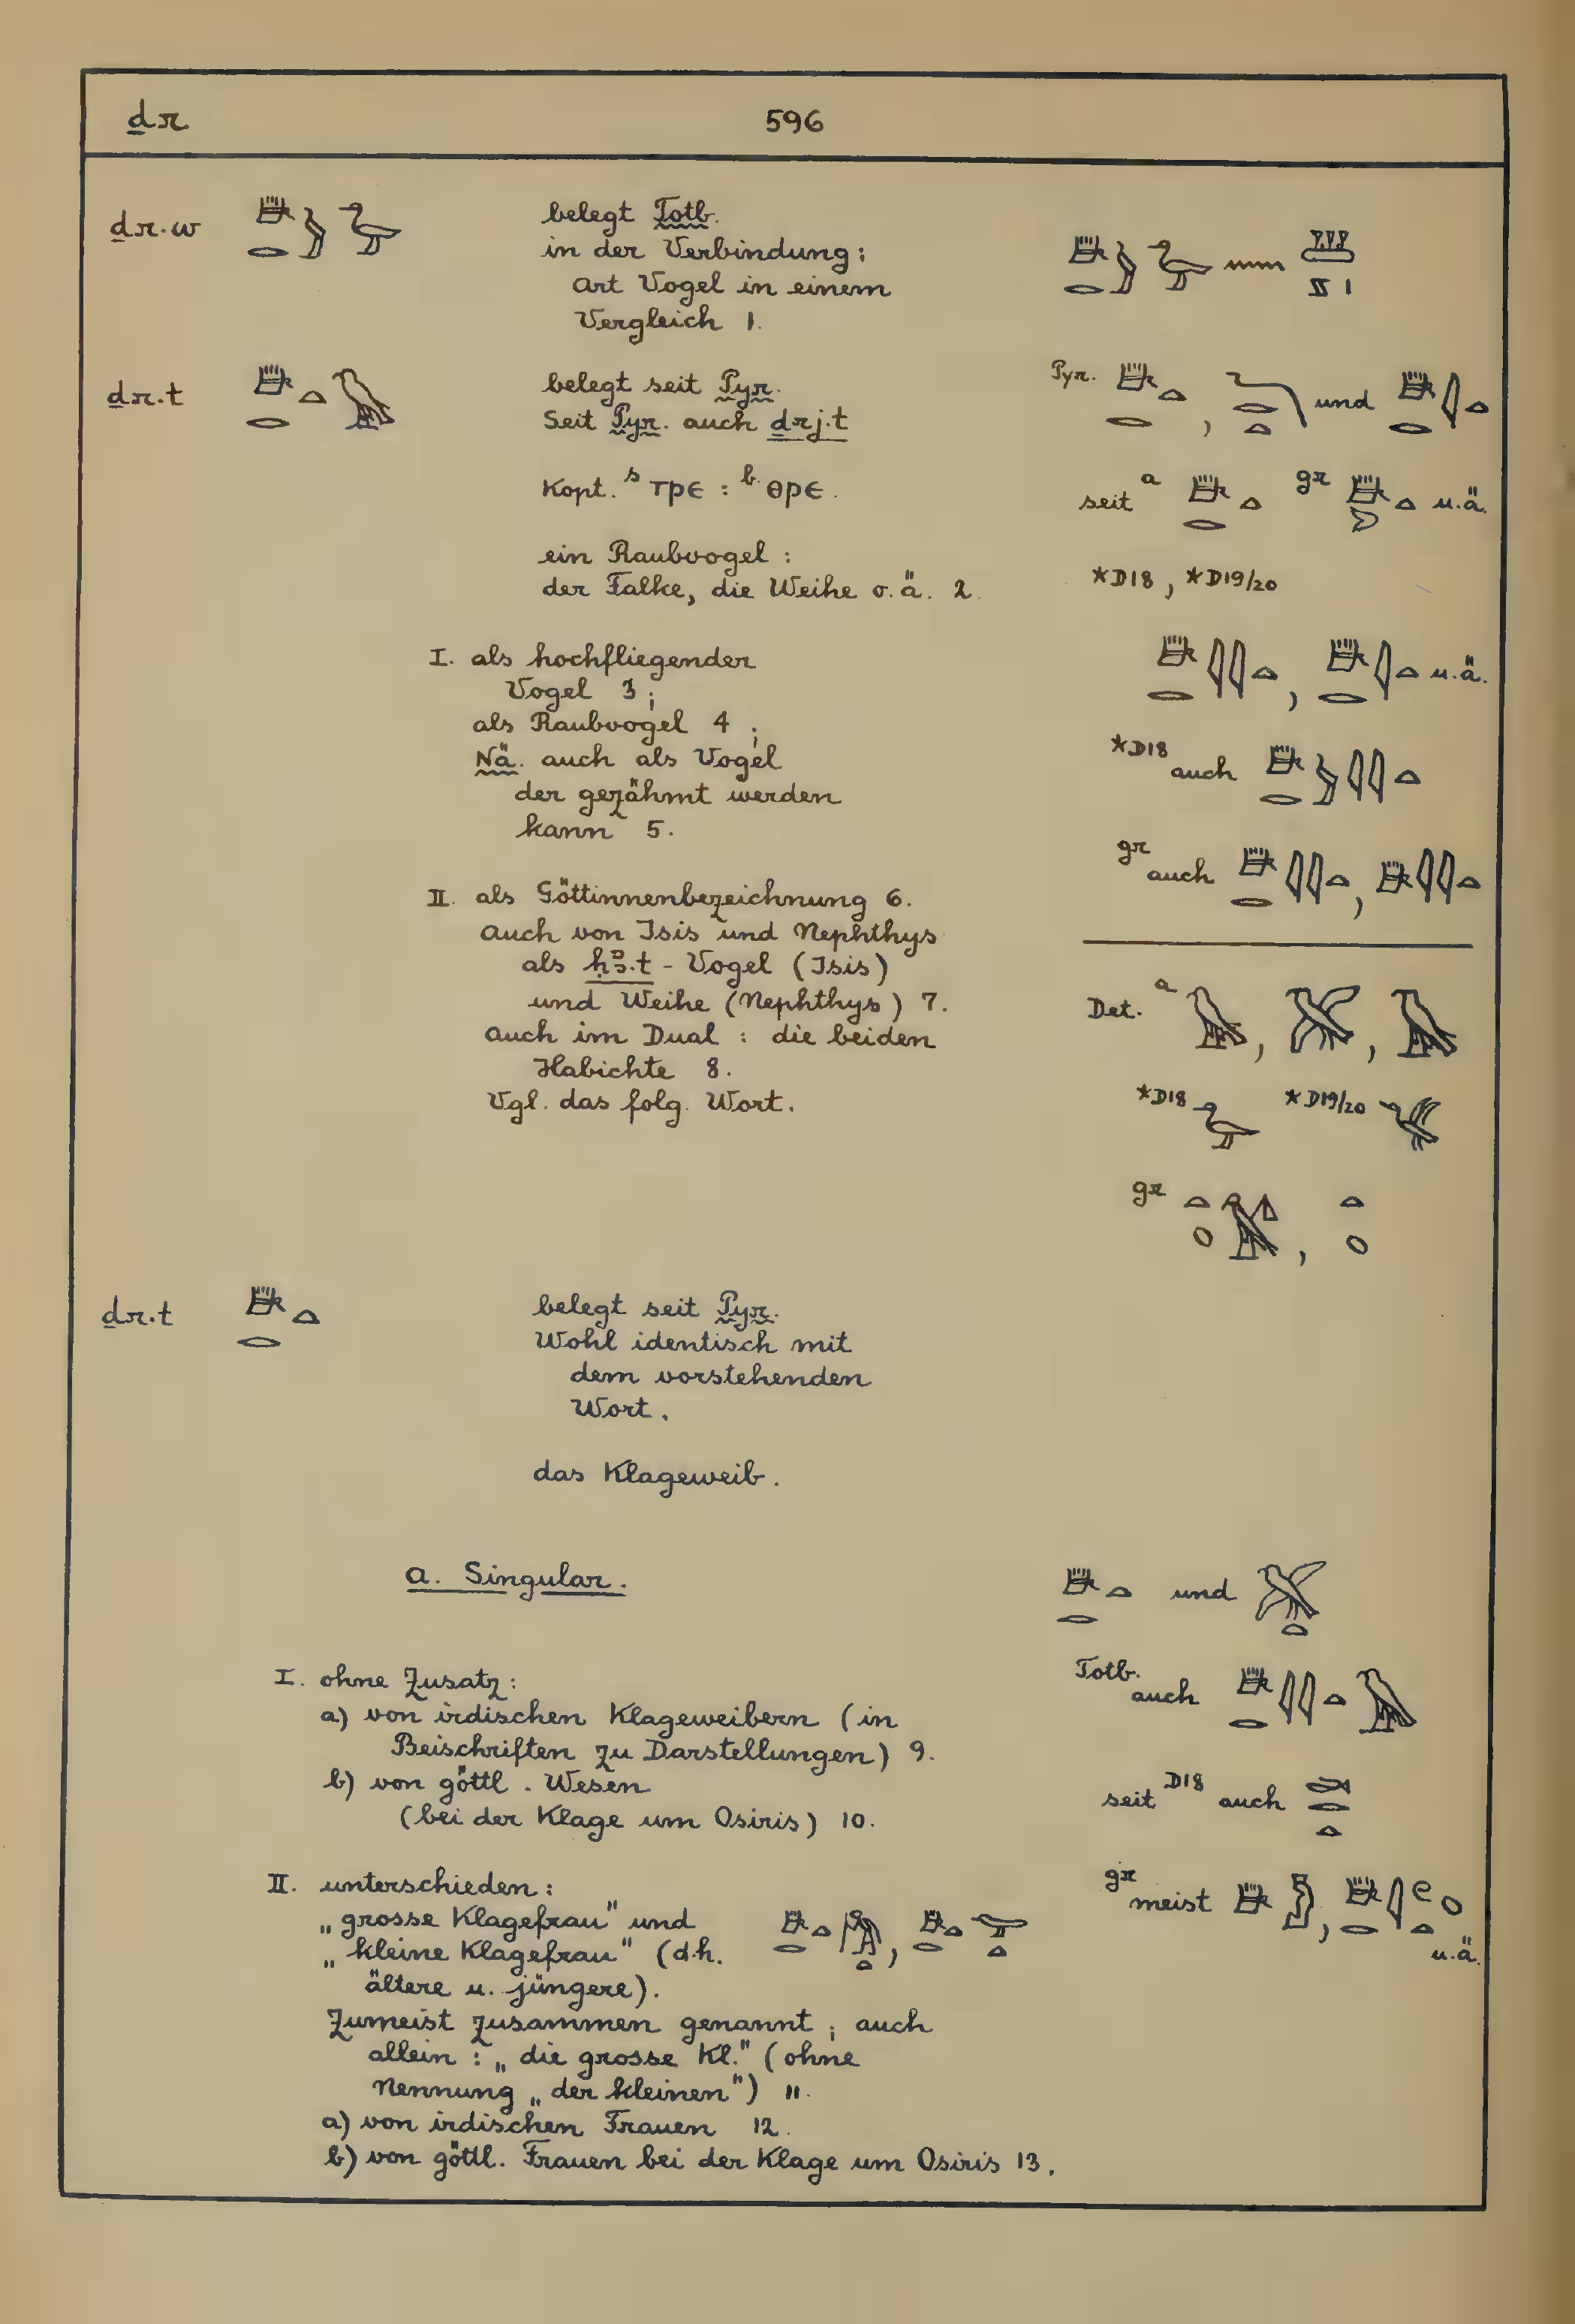 ḏr
596
ḏr.w
belegt Totb.
in der Verbindung:
Art Vogel in einem
Vergleich 1.
ḏr.t
belegt seit Pyr.
Seit Pyr. auch ḏrj.t
Kopt. s ⲧⲣⲉ : b. ⲑⲣⲉ.
ein Raubvogel:
der Falke, die Weihe o.ä. 2.
Pyr. , und
seit a gr u.ä.
*D18, *D19/20
, u.ä.
*D18 auch
gr auch ,
I. als hochfliegender
Vogel 3;
als Raubvogel 4;
Nä. auch als Vogel
der gezähmt werden
kann 5.
II. als Göttinnenbezeichnung 6.
auch von Isis und Nephthys
als ḥꜣ.t-Vogel (Isis)
und Weihe (Nephthys) 7.
auch im Dual: die beiden
Habichte 8.
Vgl. das folg. Wort.
Det. a , ,
*D18 *D19/20
gr ,
ḏr.t
belegt seit Pyr.
Wohl identisch mit
dem vorstehenden
Wort.
das Klageweib.
a. Singular.
und
I. ohne Zusatz:
a) von irdischen Klageweibern (in
Beischriften zu Darstellungen) 9.
b) von göttl. Wesen
(bei der Klage um Osiris) 10.
Totb. auch
seit D18 auch
gr meist , u.ä.
II. unterschieden:
„grosse Klagefrau" und
„kleine Klagefrau" (d.h.
ältere u. jüngere).
Zumeist zusammen genannt; auch
allein: „die grosse Kl." (ohne
Nennung „der kleinen") 11.
a) von irdischen Frauen 12.
b) von göttl. Frauen bei der Klage um Osiris 13.